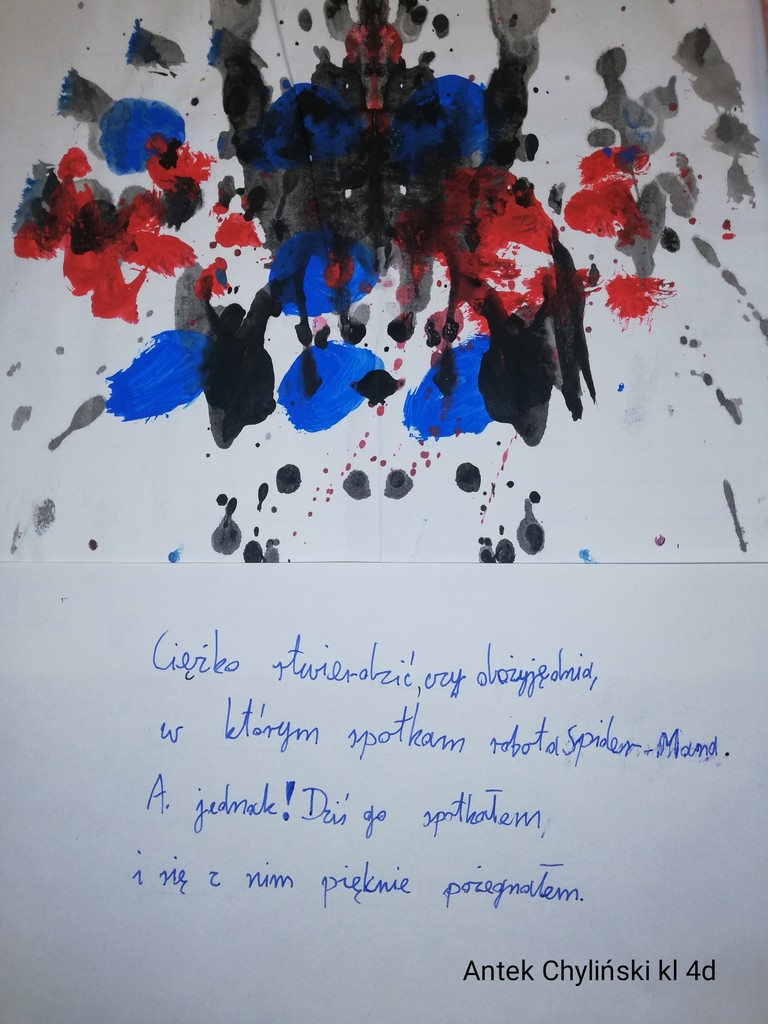 Ciężko stwierdzić, czy dożyję dnia,
w którym spotkam robota Spider-Mana.
A jednak! Dziś go spotkałem,
i się z nim pięknie pożegnałem.
Antek Chyliński kl 4d